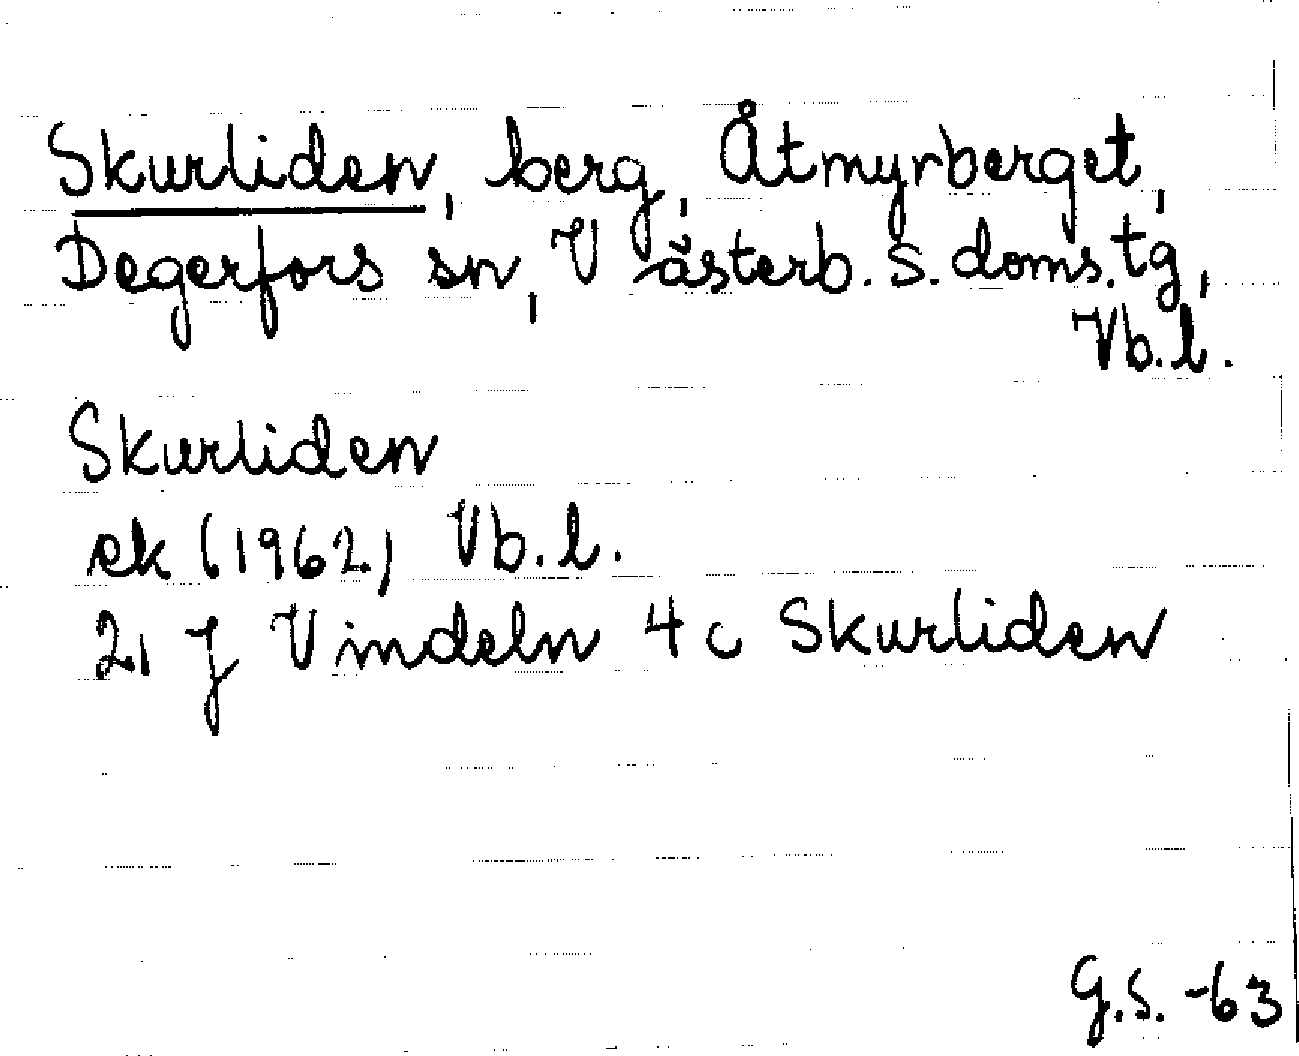 Skurliden, berg, Åtmyrberget,
Degerfors sn, Västerb. s. doms. tg,
Vb. l.
Skurliden
ek (1962) Vb. l.
21 J Vindeln 4 c Skurliden
G.S. -63